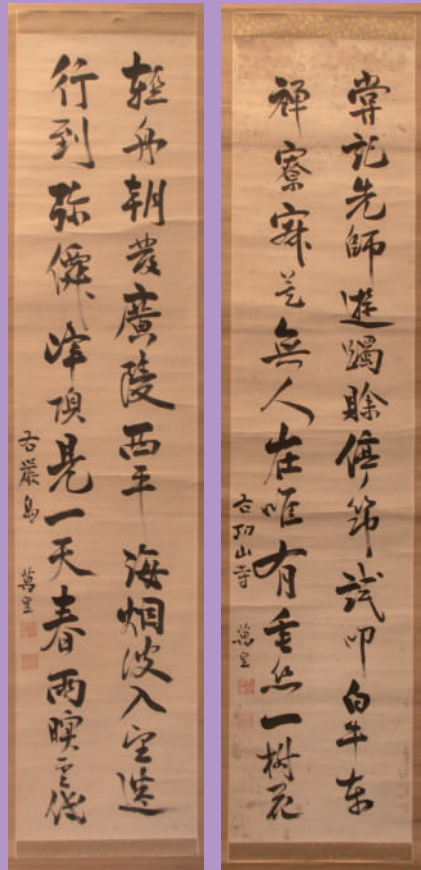 嘗記先師遊躅賖停筇試叩白牛車
禅寮寂々無人在唯有垂絲一樹花
右功山寺 萬里
輕舟朝發廣陵西平海烟波入望迷
行到弥僊峰頂見一天春雨暝雲低
右嚴島 萬里